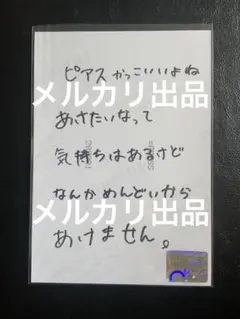 ピアスかっこいいよね
メルカリ出品
あけたいなって
メルカリ出品
気持ちはあるけど
なんかめんどいから
メルカリ出品
あけません。